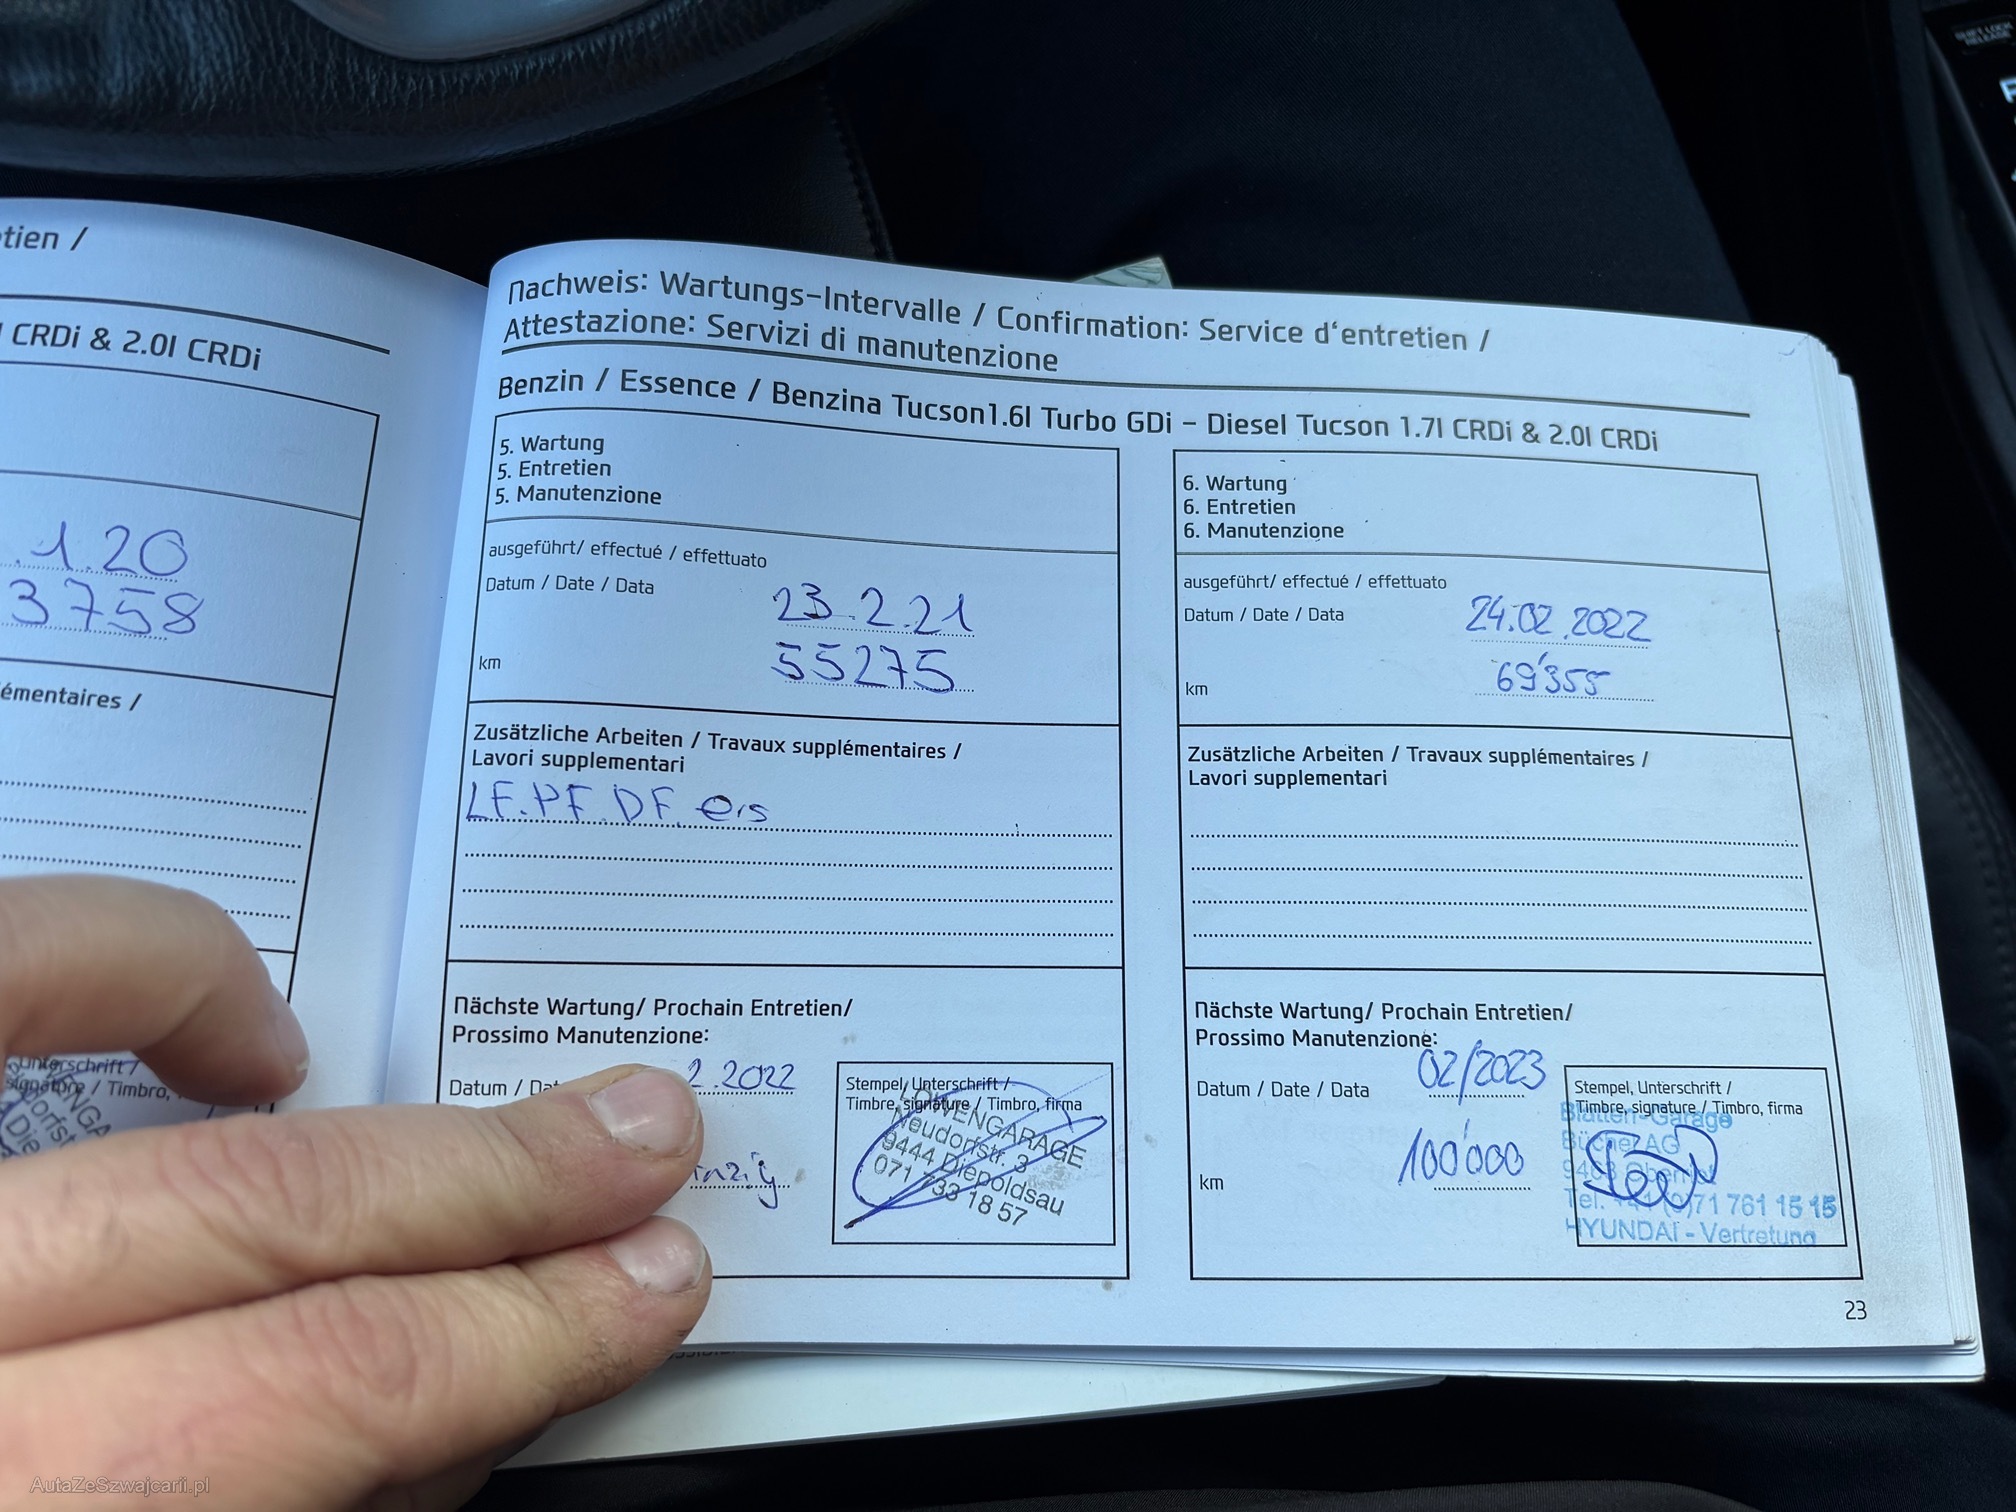 tien /
CRDi & 2.0l CRDi
.1.20
3758
émentaires /
Unterschrift /
signature / Timbro,
Nachweis: Wartungs-Intervalle / Confirmation: Service d'entretien /
Attestazione: Servizi di manutenzione
Benzin / Essence / Benzina Tucson1.6l Turbo GDi – Diesel Tucson 1.7l CRDi & 2.0l CRDi
5. Wartung
5. Entretien
5. Manutenzione
ausgeführt/ effectué / effettuato
Datum / Date / Data 23.2.21
km 55275
Zusätzliche Arbeiten / Travaux supplémentaires /
Lavori supplementari
LF. PF. DF. ers
Nächste Wartung/ Prochain Entretien/
Prossimo Manutenzione:
Datum / Da 2.2022
Stempel, Unterschrift /
Timbre, signature / Timbro, firma
LÖWENGARAGE
Neudorfstr. 3
9444 Diepoldsau
071 733 18 57
6. Wartung
6. Entretien
6. Manutenzione
ausgeführt/ effectué / effettuato
Datum / Date / Data 24.02.2022
km 69'355
Zusätzliche Arbeiten / Travaux supplémentaires /
Lavori supplementari
Nächste Wartung/ Prochain Entretien/
Prossimo Manutenzione:
Datum / Date / Data 02/2023
km 100'000
Stempel, Unterschrift /
Timbre, signature / Timbro, firma
Blatten-Garage
Büchel AG
Tel. +41 (0)71 761 15 15
HYUNDAI - Vertretung
23
AutaZeSzwajcarii.pl